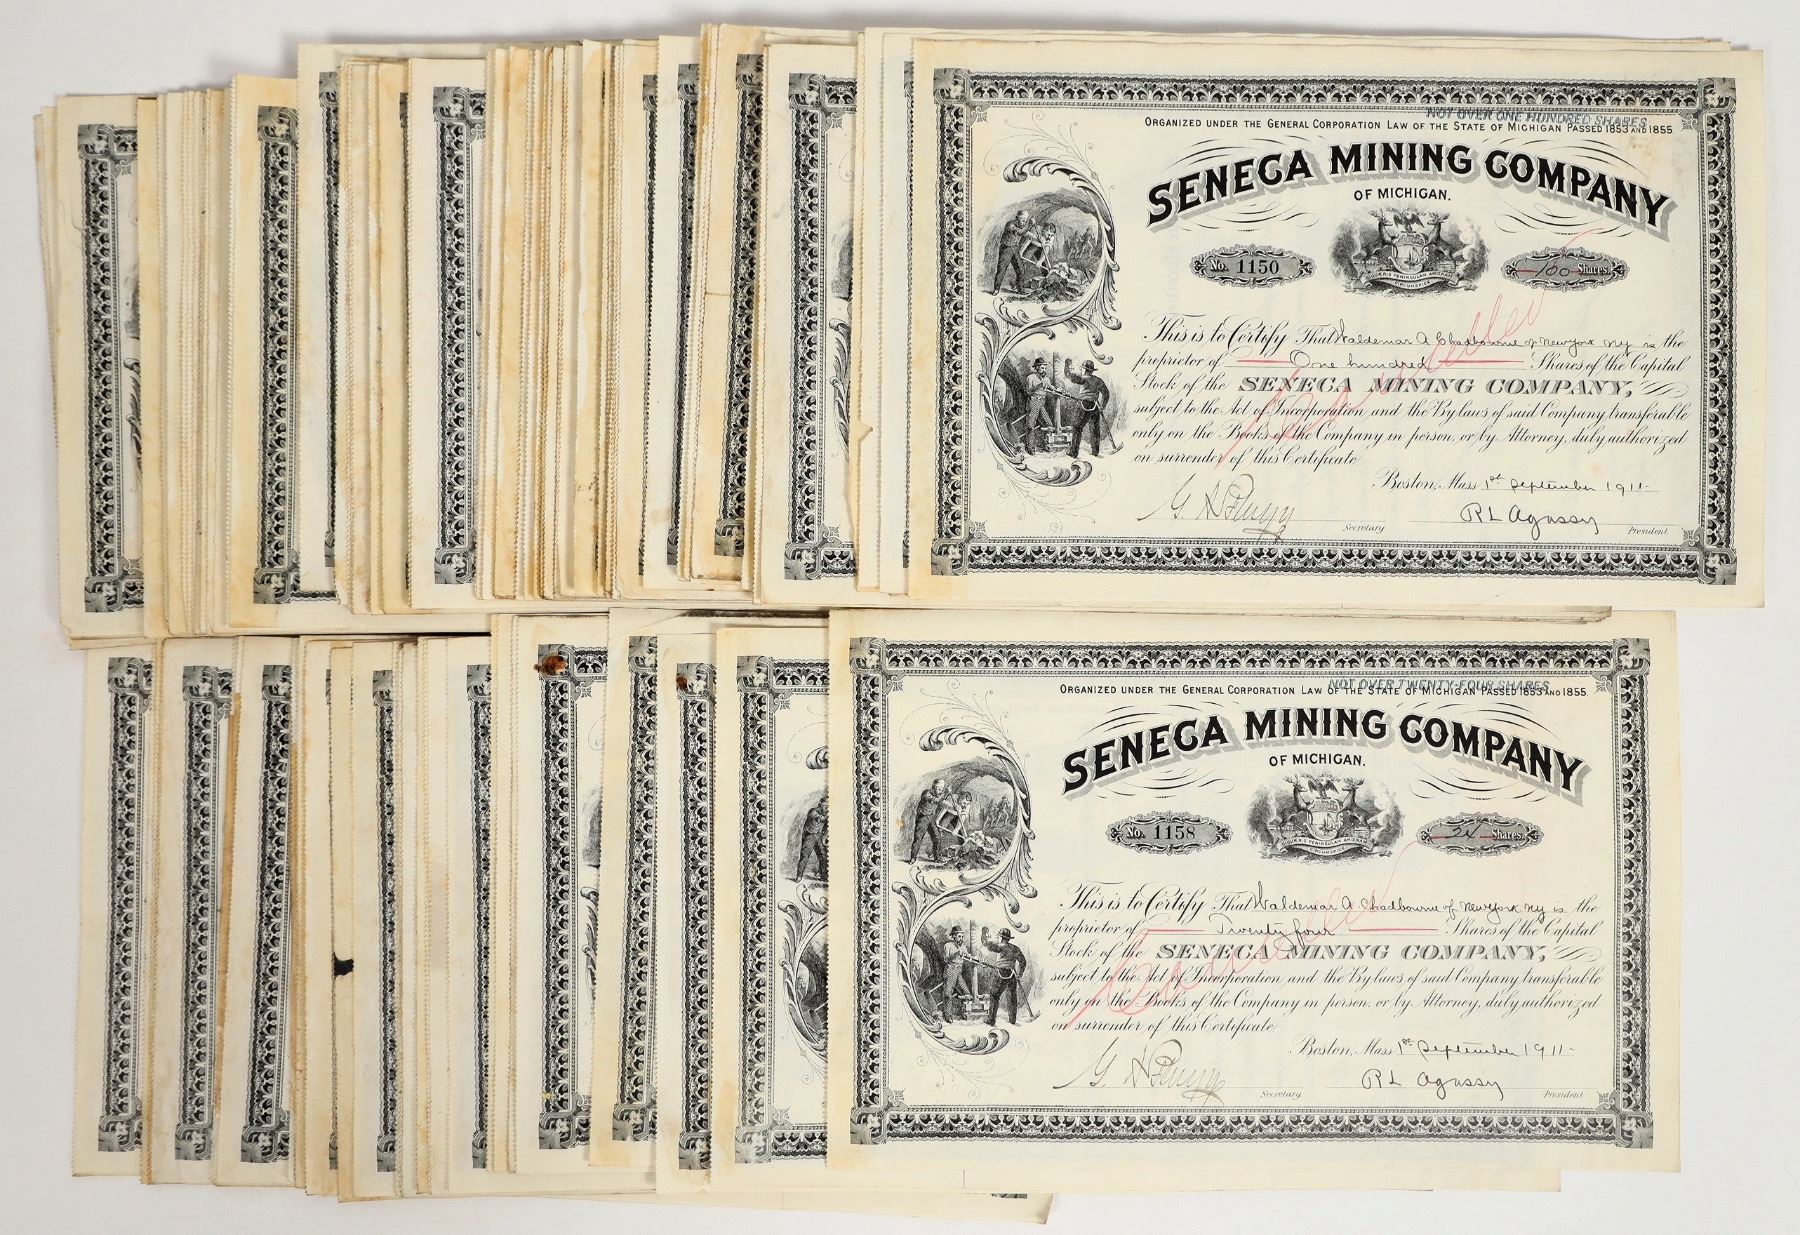 NOT OVER ONE HUNDRED SHARES
ORGANIZED UNDER THE GENERAL CORPORATION LAW OF THE STATE OF MICHIGAN PASSED 1853 AND 1855
SENECA MINING COMPANY
OF MICHIGAN.
No. 1150
100 Shares.
This is to Certify That Waldemar A Chadbourne of New York NY is the
proprietor of One hundred Shares of the Capital
Stock of the SENECA MINING COMPANY,
subject to the Act of Incorporation and the By laws of said Company transferable
only on the Books of the Company in person, or by Attorney, duly authorized
on surrender of this Certificate.
Cancelled
Boston, Mass 1st September 1911
R L Agassiz
Secretary. President.
NOT OVER TWENTY-FOUR SHARES
ORGANIZED UNDER THE GENERAL CORPORATION LAW OF THE STATE OF MICHIGAN PASSED 1853 AND 1855
SENECA MINING COMPANY
OF MICHIGAN.
No. 1158
24 Shares.
This is to Certify That Waldemar A Chadbourne of New York NY is the
proprietor of Twenty four Shares of the Capital
Stock of the SENECA MINING COMPANY,
subject to the Act of Incorporation and the By laws of said Company transferable
only on the Books of the Company in person, or by Attorney, duly authorized
on surrender of this Certificate.
Cancelled
Boston, Mass 1st September 1911
R L Agassiz
Secretary. President.